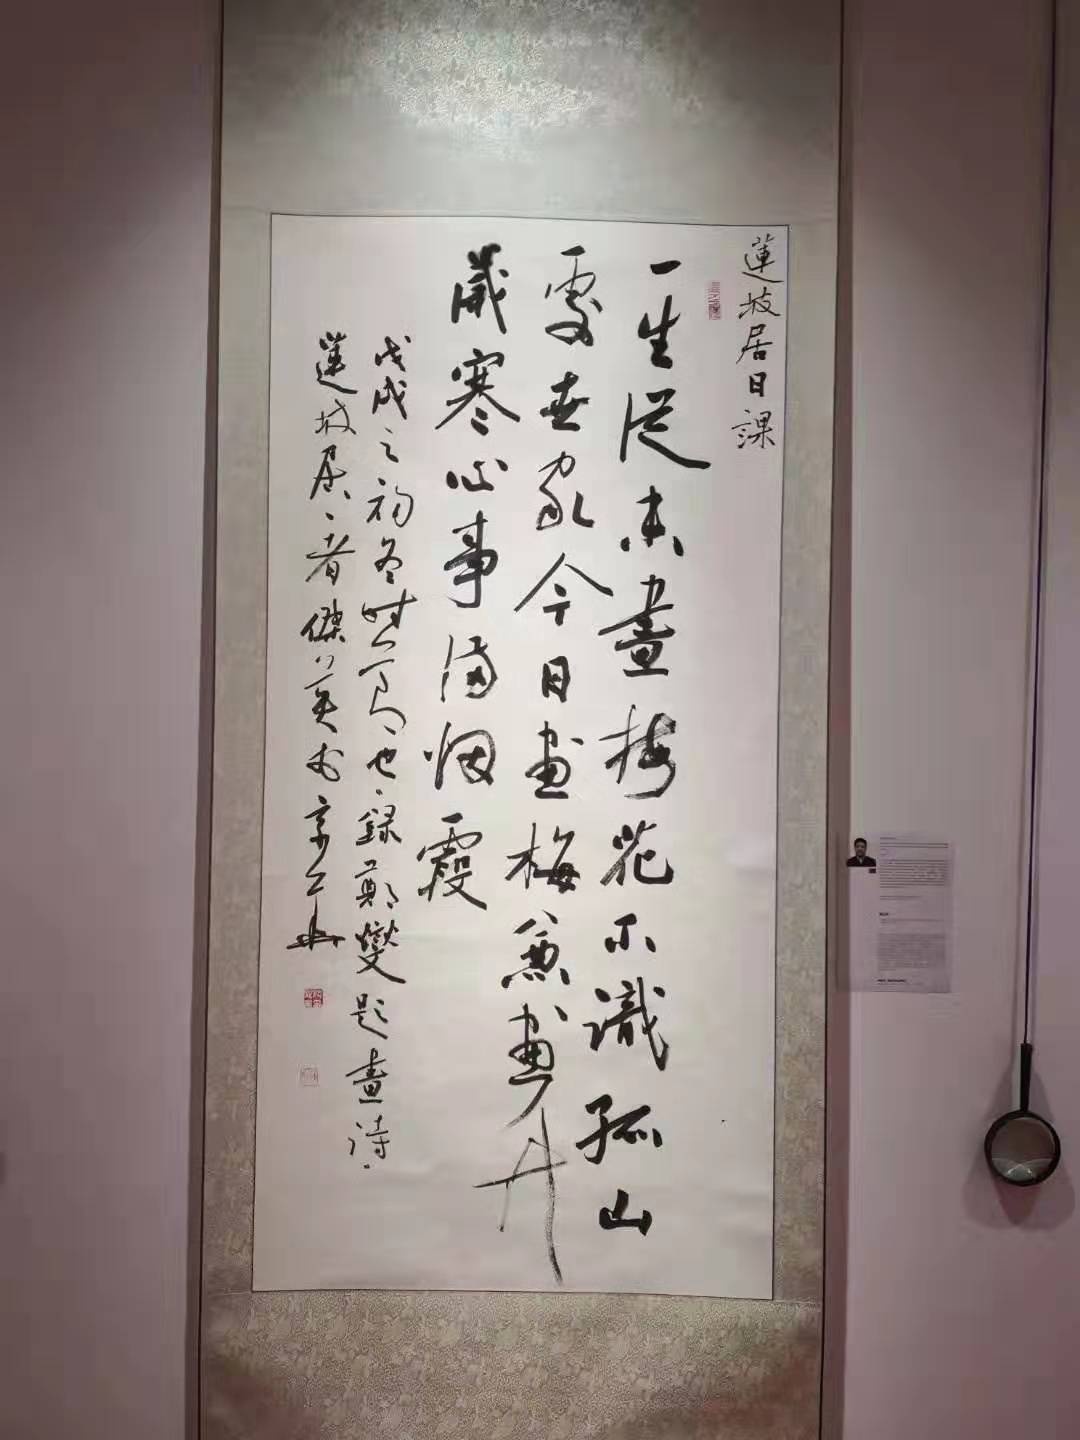 蓮坡居日課
一生從未畫梅花不識孤山
處世家今日畫梅兼畫竹
歲寒心事滿烟霞
戊戌之初冬時節也錄鄭燮題畫詩
蓮坡居者傑英於京